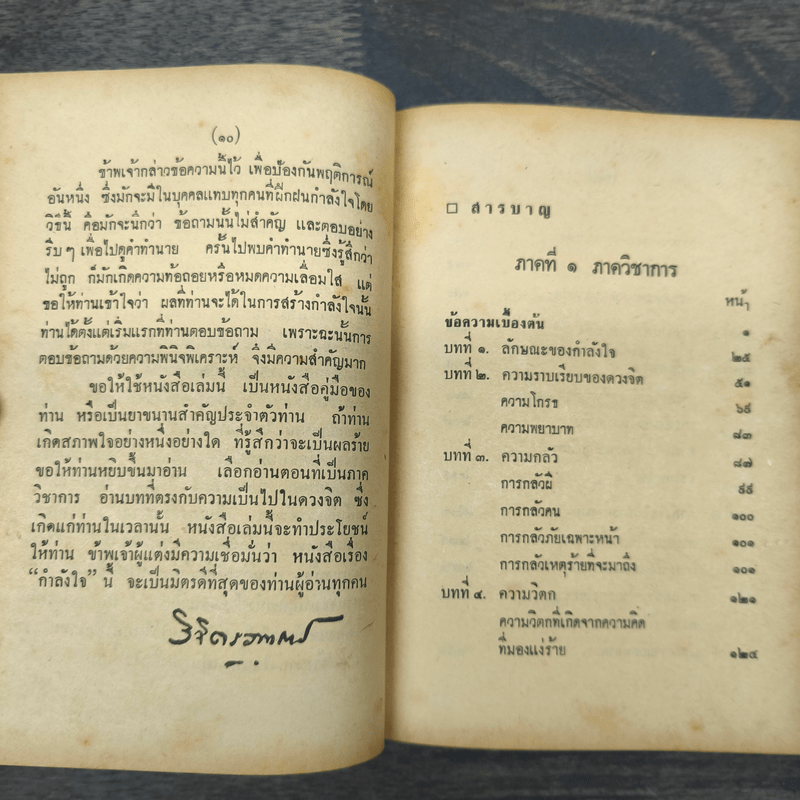 (๑๐)
ข้าพเจ้ากล่าวข้อความนี้ไว้ เพื่อป้องกันพฤติการณ์
อันหนึ่ง ซึ่งมักจะมีในบุคคลแทบทุกคนที่ฝึกฝนกำลังใจโดย
วิธีนี้ คือมักจะนึกว่า ข้อถามนั้นไม่สำคัญ และตอบอย่าง
รีบๆ เพื่อไปดูคำทำนาย ครั้นไปพบคำทำนายซึ่งรู้สึกว่า
ไม่ถูก ก็มักเกิดความท้อถอยหรือหมดความเลื่อมใส แต่
ขอให้ท่านเข้าใจว่า ผลที่ท่านจะได้ในการสร้างกำลังใจนั้น
ท่านได้ตั้งแต่เริ่มแรกที่ท่านตอบข้อถาม เพราะฉะนั้นการ
ตอบข้อถามด้วยความพินิจพิเคราะห์ จึงมีความสำคัญมาก
ขอให้ใช้หนังสือเล่มนี้ เป็นหนังสือคู่มือของ
ท่าน หรือเป็นยาขนานสำคัญประจำตัวท่าน ถ้าท่าน
เกิดสภาพใจอย่างหนึ่งอย่างใด ที่รู้สึกว่าจะเป็นผลร้าย
ขอให้ท่านหยิบขึ้นมาอ่าน เลือกอ่านตอนที่เป็นภาค
วิชาการ อ่านบทที่ตรงกับความเป็นไปในดวงจิต ซึ่ง
เกิดแก่ท่านในเวลานั้น หนังสือเล่มนี้จะทำประโยชน์
ให้ท่าน ข้าพเจ้าผู้แต่งมีความเชื่อมั่นว่า หนังสือเรื่อง
“กำลังใจ” นี้ จะเป็นมิตรดีที่สุดของท่านผู้อ่านทุกคน
สารบาญ
ภาคที่ ๑ ภาควิชาการ
หน้า
ข้อความเบื้องต้น ๑
บทที่ ๑. ลักษณะของกำลังใจ ๒๕
บทที่ ๒. ความราบเรียบของดวงจิต ๕๑
ความโกรธ ๖๙
ความพยาบาท ๘๓
บทที่ ๓. ความกลัว ๘๗
การกลัวผี ๙๙
การกลัวคน ๑๐๐
การกลัวภัยเฉพาะหน้า ๑๐๑
การกลัวเหตุร้ายที่จะมาถึง ๑๐๑
บทที่ ๔. ความวิตก ๑๒๑
ความวิตกที่เกิดจากความคิด
ที่มองแง่ร้าย ๑๒๔